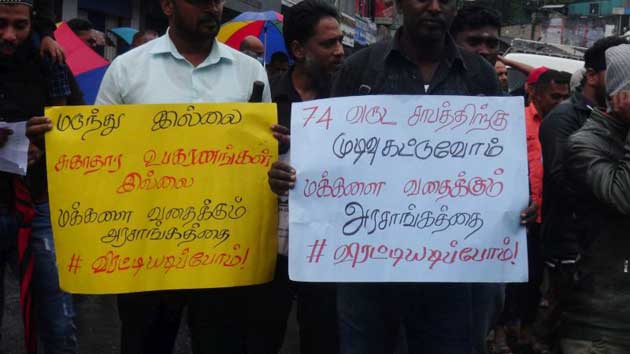 மருந்து இல்லை
சுகாதார உபகரணங்கள்
இல்லை
மக்களை வதைக்கும்
அரசாங்கத்தை
# விரட்டியடிப்போம்!
74 வருட சாபத்திற்கு
முடிவு கட்டுவோம்
மக்களை வதைக்கும்
அரசாங்கத்தை
# விரட்டியடிப்போம்!